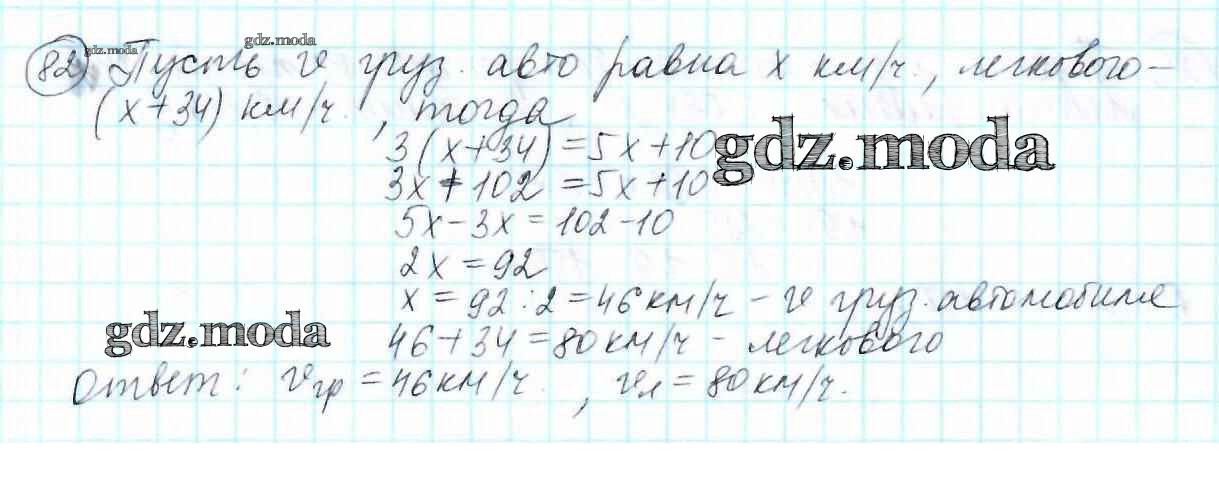 gdz.moda gdz.moda
82) Пусть v груз. авто равна x км/ч., легкового -
(x+34) км/ч., тогда
3(x+34)=5x+10
gdz.moda
3x+102=5x+10
5x-3x=102-10
2x=92
x=92:2=46 км/ч - v груз. автомобиле
gdz.moda
46+34=80 км/ч - легкового
Ответ: vгр=46 км/ч., vл=80 км/ч.